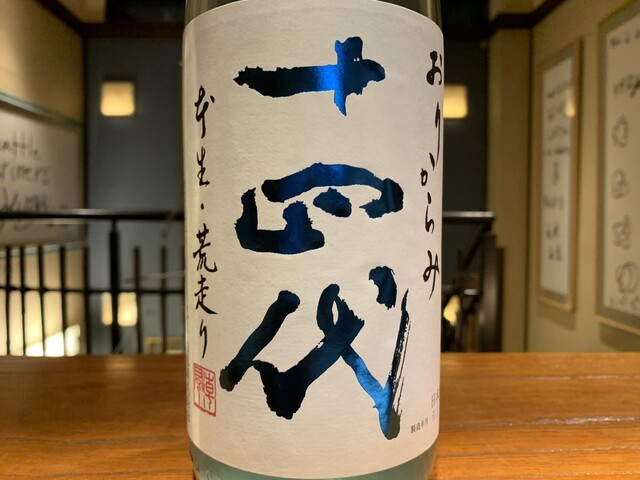 おりからみ
十四代
本生・荒走り
製造年月
日本
Seattle
Mariners